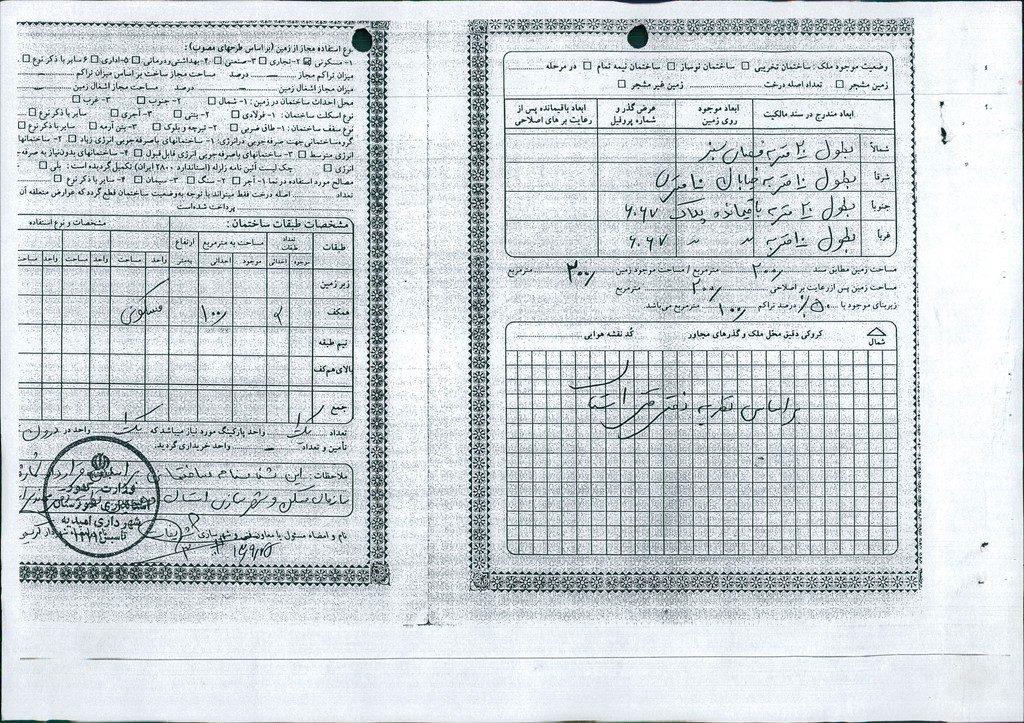 وضعیت موجود ملک: ساختمان تخریبی □ ساختمان نوساز □ ساختمان نیمه تمام □ در مرحله
زمین مشجر □ تعداد اصله درخت زمین غیر مشجر □
ابعاد مندرج در سند مالکیت
ابعاد موجود روی زمین
عرض گذر و شماره پروفیل
ابعاد باقیمانده پس از رعایت بر های اصلاحی
شمالاً بطول ۲۰ متر به فضای سبز
شرقا بطول ۱۰ متر به خیابان ۱۰ متری
جنوبا بطول ۲۰ متر به باقیمانده پلاک ۶۰۶۷
غربا بطول ۱۰ متر به ״ ״ ۶۰۶۷
مساحت زمین مطابق سند ۲۰۰ مترمربع / مساحت موجود زمین ۲۰۰ مترمربع
مساحت زمین پس از رعایت بر اصلاحی ۲۰۰ مترمربع
زیربنای موجود با ۵۰٪ درصد تراکم ۱۰۰ مترمربع می‌باشد
کروکی دقیق محل ملک و گذرهای مجاور کد نقشه هوایی
شمال
بر اساس نظریه دفتر فنی استان
نوع استفاده مجاز از زمین (بر اساس طرحهای مصوب):
۱- مسکونی ☑ ۲- تجاری □ ۳- صنعتی □ ۴- بهداشتی و درمانی □ ۵- اداری □ ۶ سایر با ذکر نوع □
میزان تراکم مجاز — درصد مساحت مجاز ساخت بر اساس میزان تراکم —
میزان مجاز اشغال زمین — درصد مساحت مجاز اشغال زمین —
محل احداث ساختمان در زمین: ۱- شمال □ ۲- جنوب □ ۳- غرب □
نوع اسکلت ساختمان: ۱- فولادی □ ۲- بتنی □ ۳- آجری □ سایر با ذکر نوع □
نوع سقف ساختمان: ۱- طاق ضربی □ ۲- تیرچه و بلوک □ ۳- بتن آرمه □ سایر با ذکر نوع □
گروه ساختمانی جهت صرفه جویی در انرژی: ۱- ساختمانهای با صرفه جویی انرژی زیاد □ ۲- ساختمانها
انرژی متوسط □ ۳- ساختمانهای با صرفه جویی انرژی قابل قبول □ ۴- ساختمانهای بدون نیاز به صرفه
انرژی □ چک لیست آئین نامه زلزله (استاندارد ۲۸۰۰ ایران) تکمیل گردیده است: بلی □
مصالح مورد استفاده در نما ۱- آجر □ ۲- سنگ □ ۳- سیمان □ ۴- سایر با ذکر نوع □
تعداد اصله درخت فقط میتواند با توجه به وضعیت ساختمان قطع گردد که عوارض متعلقه آن
پرداخت شده است
مشخصات طبقات ساختمان:
طبقات
تعداد طبقات
مساحت به مترمربع
ارتفاع
مشخصات و نوع استفاده
موجود احداثی موجود احداثی به متر واحد مساحت واحد مساحت واحد مساحت
زیر زمین
همکف ۱۰۰ مسکونی
نیم طبقه
بالای همکف
جمع
تعداد یک واحد پارکینگ مورد نیاز میباشد که یک واحد در درون
تأمین و تعداد — واحد خریداری گردید.
ملاحظات: این شناسنامه ساختمان بر اساس
سازمان مسکن و شهرسازی استان
نام و امضاء مسئول یا معاون فنی و شهرسازی
وزارت کشور
استانداری خوزستان
شهرداری امیدیه
تأسیس